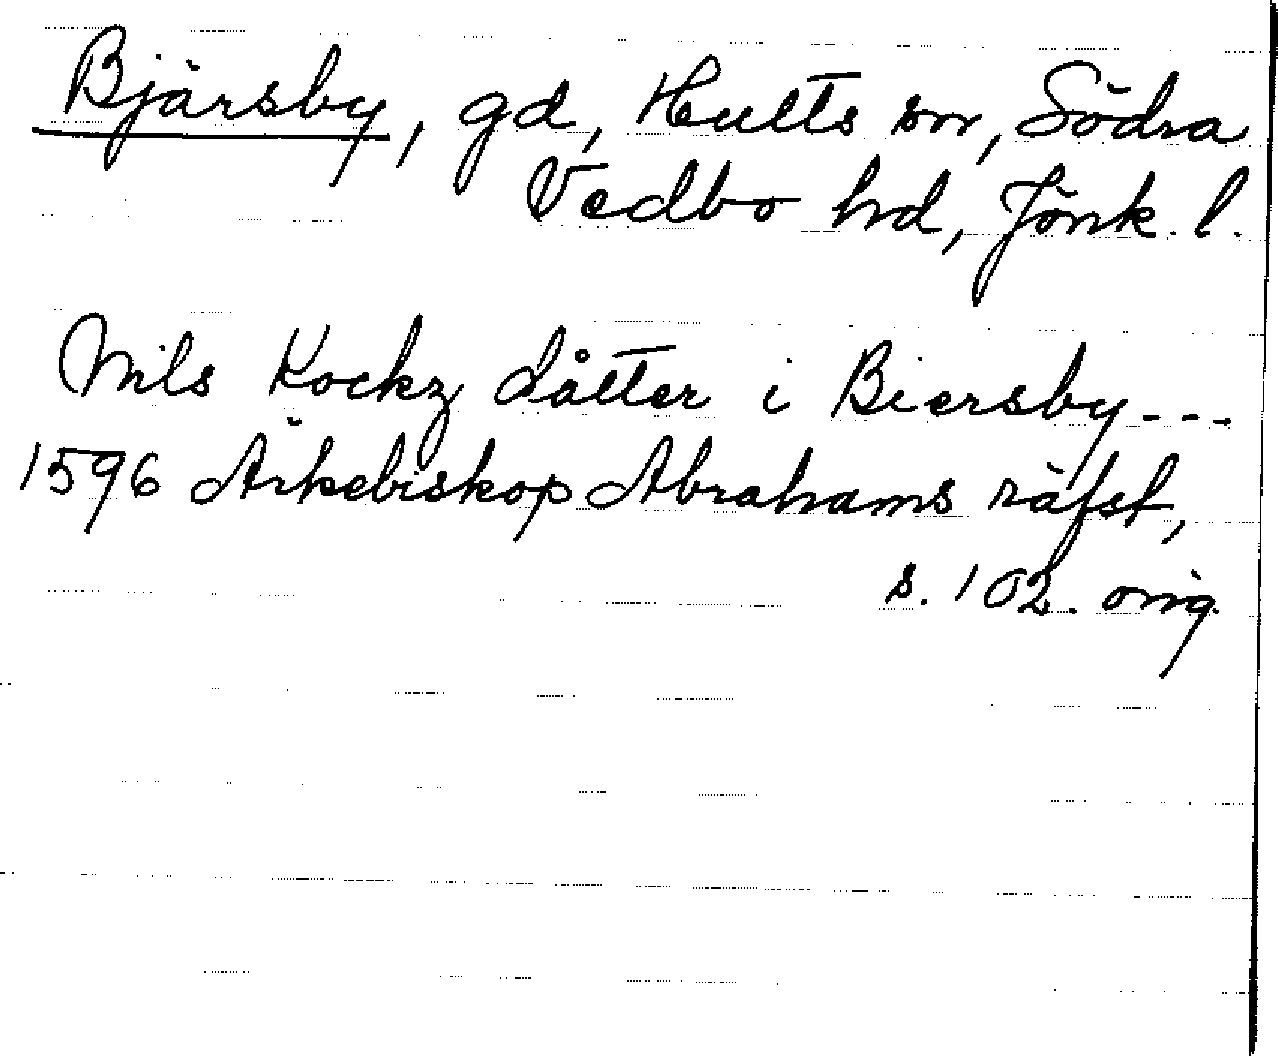 Bjärsby, gd, Hults sn, Södra
Vedbo hd, Jönk. l.
Nils Kockz dåtter i Biersby---
1596 Ärkebiskop Abrahams räfst,
s. 102. orig.